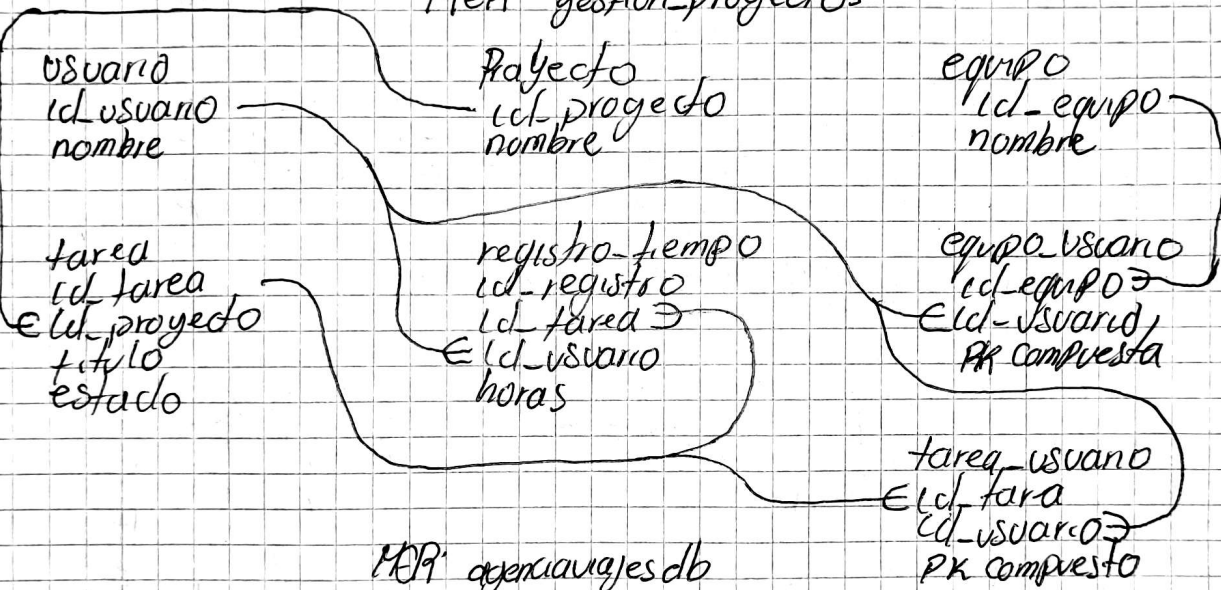 MER gestion_proyectos
usuario
id_usuario
nombre
Proyecto
id_proyecto
nombre
equipo
id_equipo
nombre
tarea
id_tarea
id_proyecto
titulo
estado
registro_tiempo
id_registro
id_tarea
id_usuario
horas
equipo_usuario
id_equipo
id_usuario,
PK compuesta
tarea_usuario
id_tara
id_usuario
PK compuesto
MER agenciaviajesdb